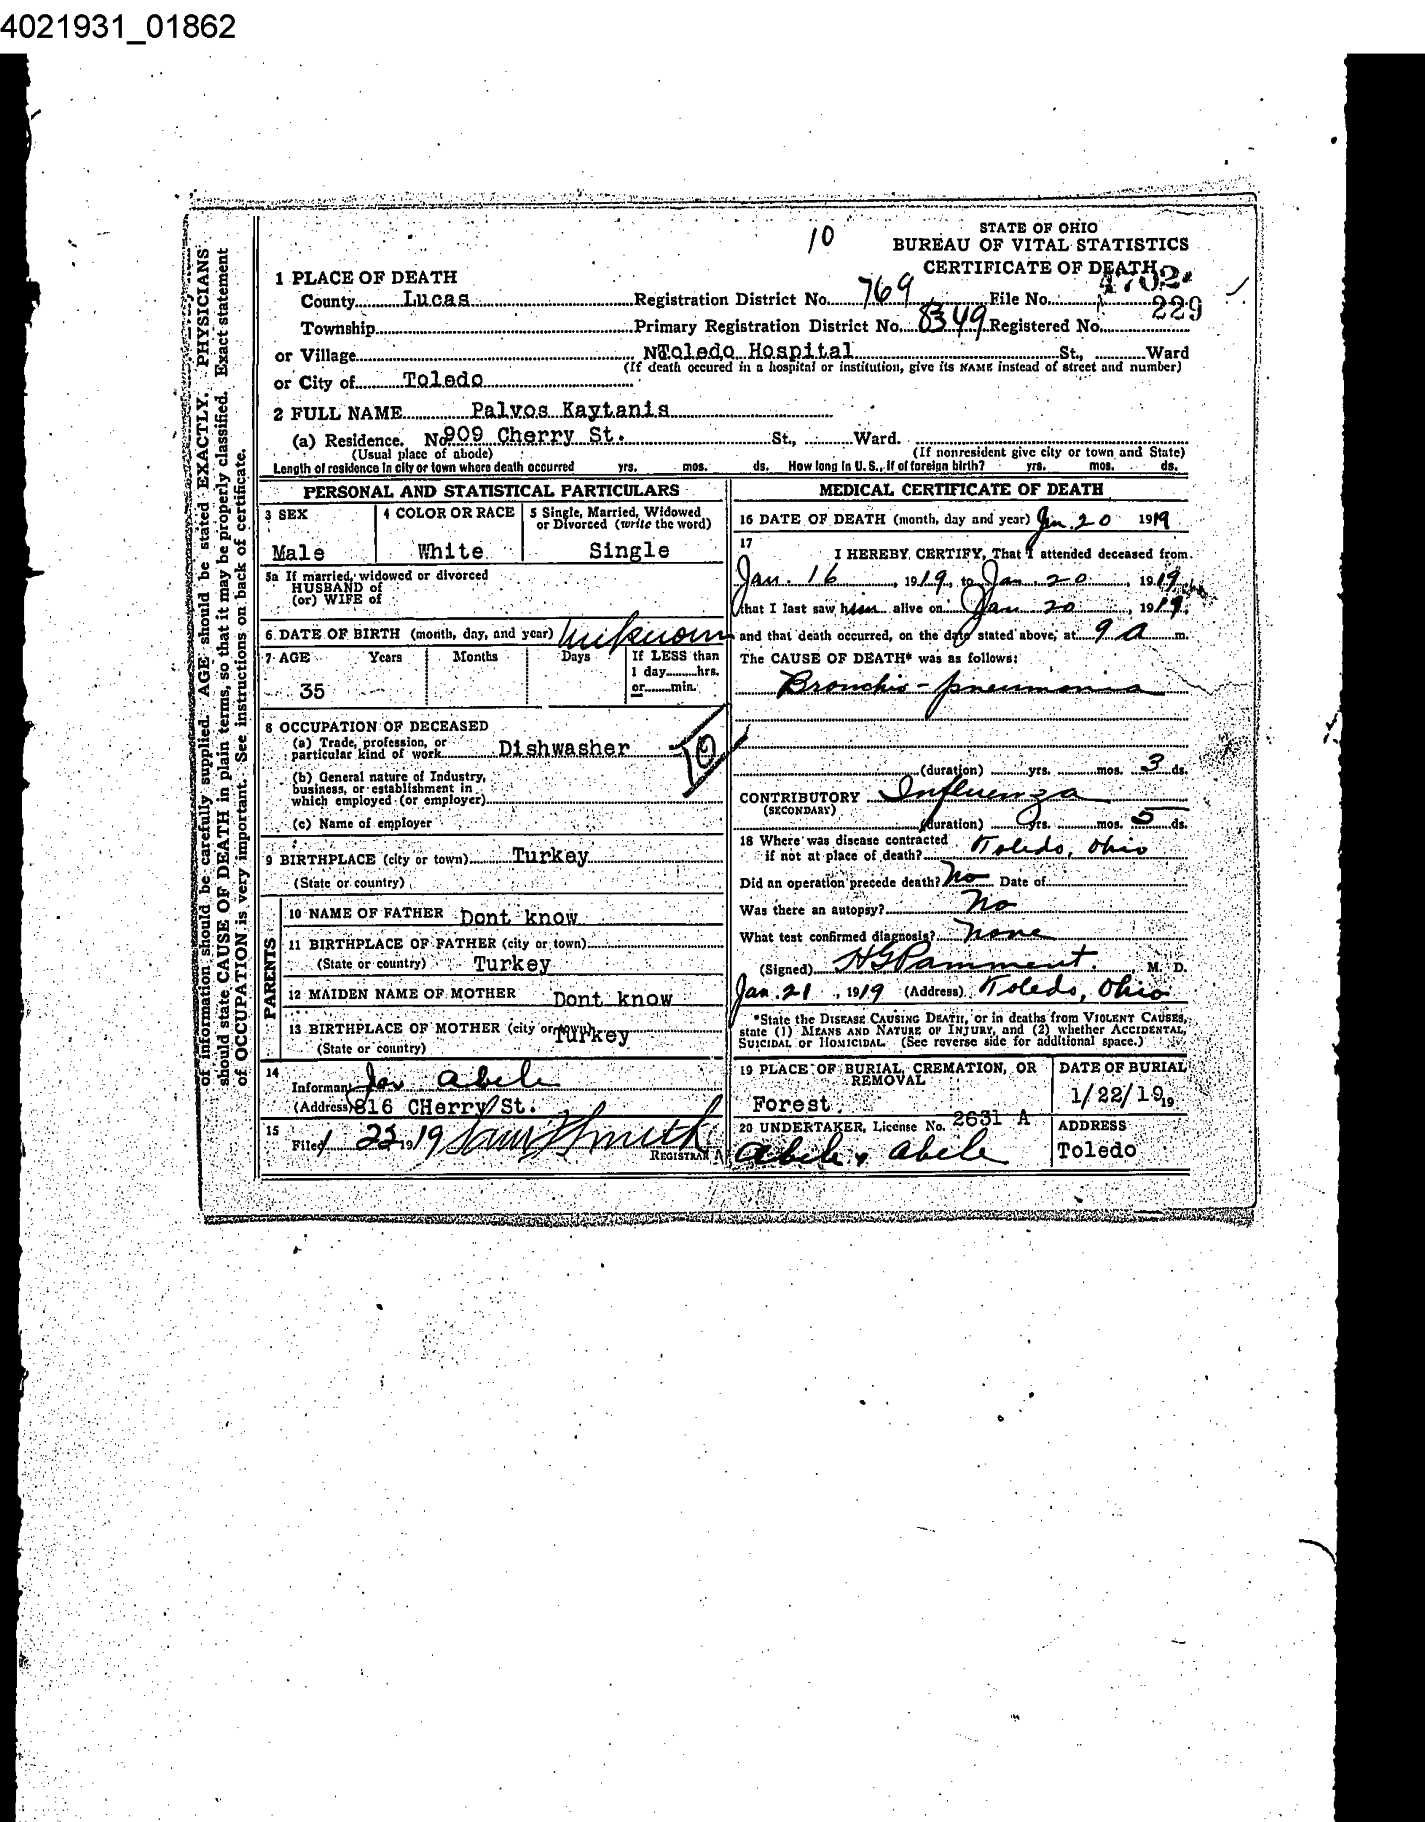 4021931_01862
10
STATE OF OHIO
BUREAU OF VITAL STATISTICS
CERTIFICATE OF DEATH
1 PLACE OF DEATH
4702
County Lucas Registration District No. 769 File No.
229
Township Primary Registration District No. 8349 Registered No.
or Village Toledo Hospital St., Ward
(If death occured in a hospital or institution, give its NAME instead of street and number)
or City of Toledo
2 FULL NAME Palvos Kaytanis
(a) Residence. No 909 Cherry St. St., Ward.
(Usual place of abode) (If nonresident give city or town and State)
Length of residence in city or town where death occurred yrs. mos. ds. How long in U. S., If of foreign birth? yrs. mos. ds.
PERSONAL AND STATISTICAL PARTICULARS
3 SEX 4 COLOR OR RACE 5 Single, Married, Widowed
or Divorced (write the word)
Male White Single
5a If married, widowed or divorced
HUSBAND of
(or) WIFE of
6 DATE OF BIRTH (month, day, and year) Unknown
7 AGE Years Months Days If LESS than
1 day hrs.
or min.
35
8 OCCUPATION OF DECEASED
(a) Trade, profession, or
particular kind of work Dishwasher
10
(b) General nature of Industry,
business, or establishment in
which employed (or employer)
(c) Name of employer
9 BIRTHPLACE (city or town) Turkey
(State or country)
PARENTS
10 NAME OF FATHER Dont know
11 BIRTHPLACE OF FATHER (city or town)
(State or country) Turkey
12 MAIDEN NAME OF MOTHER Dont know
13 BIRTHPLACE OF MOTHER (city or town) Turkey
(State or country)
14
Informant Jos Abele
(Address) 816 CHerry St.
15
Filed 1 23 1919
REGISTRAR
MEDICAL CERTIFICATE OF DEATH
16 DATE OF DEATH (month, day and year) Jan. 20 1919
17
I HEREBY CERTIFY, That I attended deceased from
Jan. 16, 1919, to Jan 20, 1919,
that I last saw him alive on Jan 20, 1919,
and that death occurred, on the date stated above, at 9 a m.
The CAUSE OF DEATH* was as follows:
Broncho-pneumonia
(duration) yrs. mos. 3 ds.
CONTRIBUTORY Influenza
(SECONDARY)
(duration) yrs. mos. 5 ds.
18 Where was disease contracted
if not at place of death? Toledo, Ohio
Did an operation precede death? No Date of
Was there an autopsy? No
What test confirmed diagnosis? None
(Signed) HG Pamment. M. D.
Jan. 21, 1919 (Address) Toledo, Ohio
*State the DISEASE CAUSING DEATH, or in deaths from VIOLENT CAUSES,
state (1) MEANS AND NATURE OF INJURY, and (2) whether ACCIDENTAL,
SUICIDAL or HOMICIDAL. (See reverse side for additional space.)
19 PLACE OF BURIAL, CREMATION, OR
REMOVAL
Forest
DATE OF BURIAL
1/22/19 19
20 UNDERTAKER, License No. 2631 A
Abele & Abele
ADDRESS
Toledo
of information should be carefully supplied. AGE should be stated EXACTLY. PHYSICIANS
should state CAUSE OF DEATH in plain terms, so that it may be properly classified. Exact statement
of OCCUPATION is very important. See instructions on back of certificate.